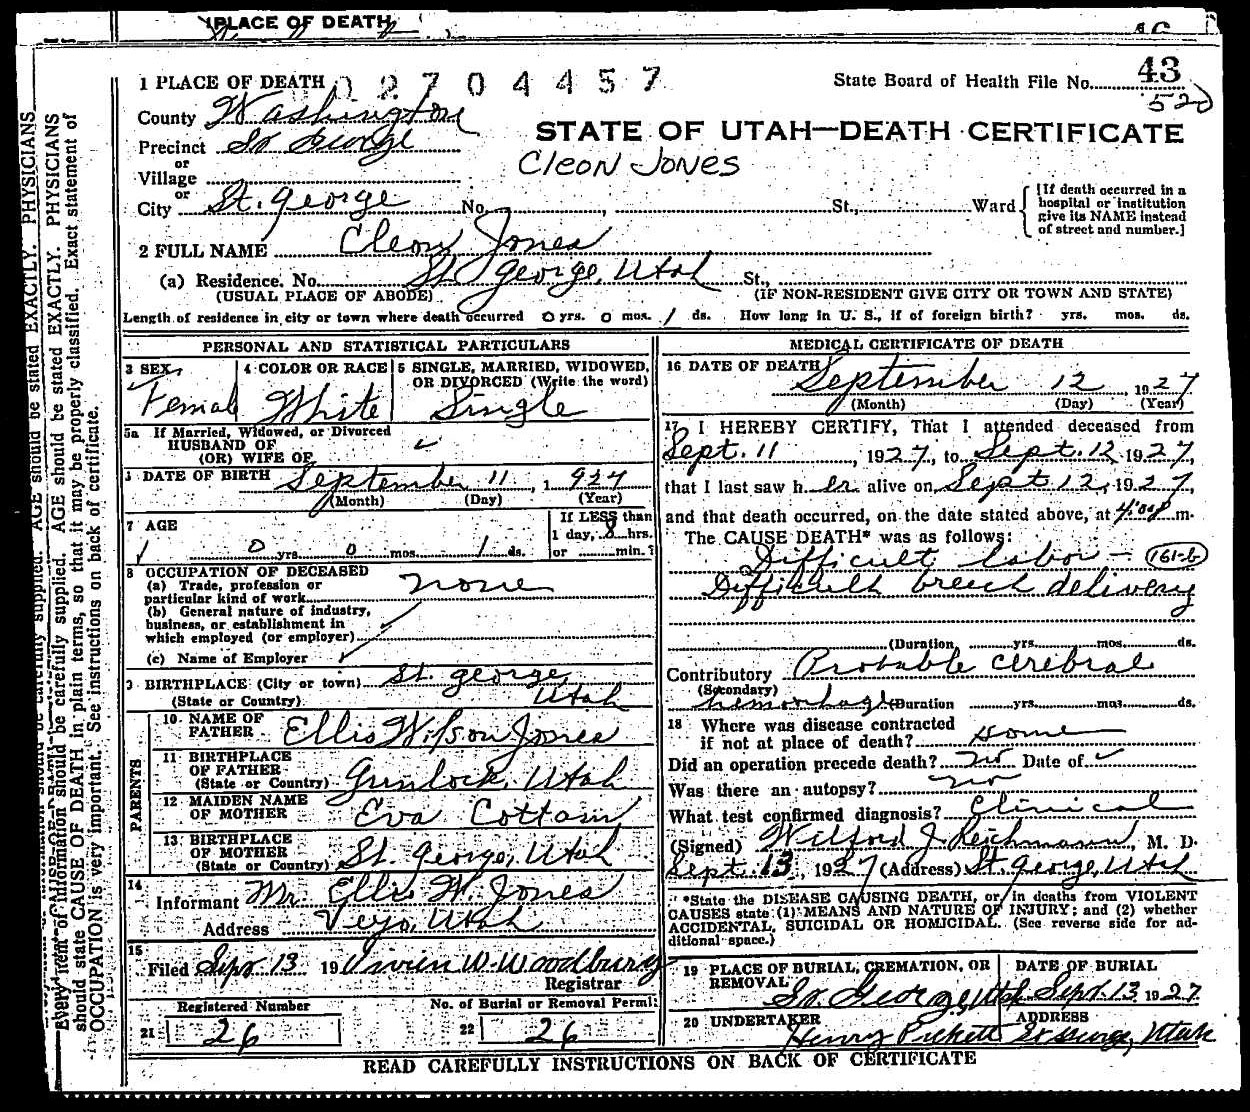 PLACE OF DEATH
1 PLACE OF DEATH 02704457
State Board of Health File No. 43
520
County Washington
STATE OF UTAH—DEATH CERTIFICATE
Precinct St George
Cleon Jones
or
Village
or
City St. George No. St., Ward
[If death occurred in a
hospital or institution
give its NAME instead
of street and number.]
2 FULL NAME Cleon Jones
(a) Residence. No. St. George, Utah St.,
(USUAL PLACE OF ABODE) (IF NON-RESIDENT GIVE CITY OR TOWN AND STATE)
Length of residence in city or town where death occurred 0 yrs. 0 mos. 1 ds. How long in U. S., if of foreign birth? yrs. mos. ds.
PERSONAL AND STATISTICAL PARTICULARS
3 SEX
Female
4 COLOR OR RACE
White
5 SINGLE, MARRIED, WIDOWED,
OR DIVORCED (Write the word)
Single
5a If Married, Widowed, or Divorced
HUSBAND OF
(OR) WIFE OF
DATE OF BIRTH September 11, 1927
(Month) (Day) (Year)
7 AGE
If LESS than
1 day, 8 hrs.
or min.?
1 0 yrs. 0 mos. 1 ds.
8 OCCUPATION OF DECEASED
(a) Trade, profession or
particular kind of work none
(b) General nature of industry,
business, or establishment in
which employed (or employer)
(c) Name of Employer
BIRTHPLACE (City or town) St. George,
(State or Country) Utah
PARENTS
10 NAME OF
FATHER Ellis Wilson Jones
11 BIRTHPLACE
OF FATHER
(State or Country) Gunlock, Utah
12 MAIDEN NAME
OF MOTHER Eva Cottam
13 BIRTHPLACE
OF MOTHER
(State or Country) St. George, Utah
14
Informant Mr. Ellis W. Jones
Address Veyo, Utah
15
Filed Sept 13 19 Vivien W Woodbury
Registrar
Registered Number
21 26
No. of Burial or Removal Permit
22 26
MEDICAL CERTIFICATE OF DEATH
16 DATE OF DEATH September 12 1927
(Month) (Day) (Year)
17 I HEREBY CERTIFY, That I attended deceased from
Sept. 11, 1927, to Sept. 12 1927,
that I last saw her alive on Sept 12, 1927,
and that death occurred, on the date stated above, at m.
The CAUSE DEATH* was as follows:
Difficult labor — 161-b
Difficult breech delivery
(Duration yrs. mos. ds.
Contributory Probable cerebral
(Secondary)
hemorrhage (Duration yrs. mos. ds.
18 Where was disease contracted
if not at place of death? home
Did an operation precede death? no Date of
Was there an autopsy? no
What test confirmed diagnosis? Clinical
(Signed) Wilford J. Reichmann, M. D.
Sept. 13, 1927 (Address) St. George, Utah
*State the DISEASE CAUSING DEATH, or in deaths from VIOLENT
CAUSES state (1) MEANS AND NATURE OF INJURY; and (2) whether
ACCIDENTAL, SUICIDAL OR HOMICIDAL. (See reverse side for ad-
ditional space.)
19 PLACE OF BURIAL, CREMATION, OR
REMOVAL
St George, Utah
DATE OF BURIAL
Sept. 13 1927
20 UNDERTAKER
Henry Pickett
ADDRESS
St George, Utah
READ CAREFULLY INSTRUCTIONS ON BACK OF CERTIFICATE
Every item of information should be carefully supplied. AGE should be stated EXACTLY. PHYSICIANS
should state CAUSE OF DEATH in plain terms, so that it may be properly classified. Exact statement of
OCCUPATION is very important. See instructions on back of certificate.